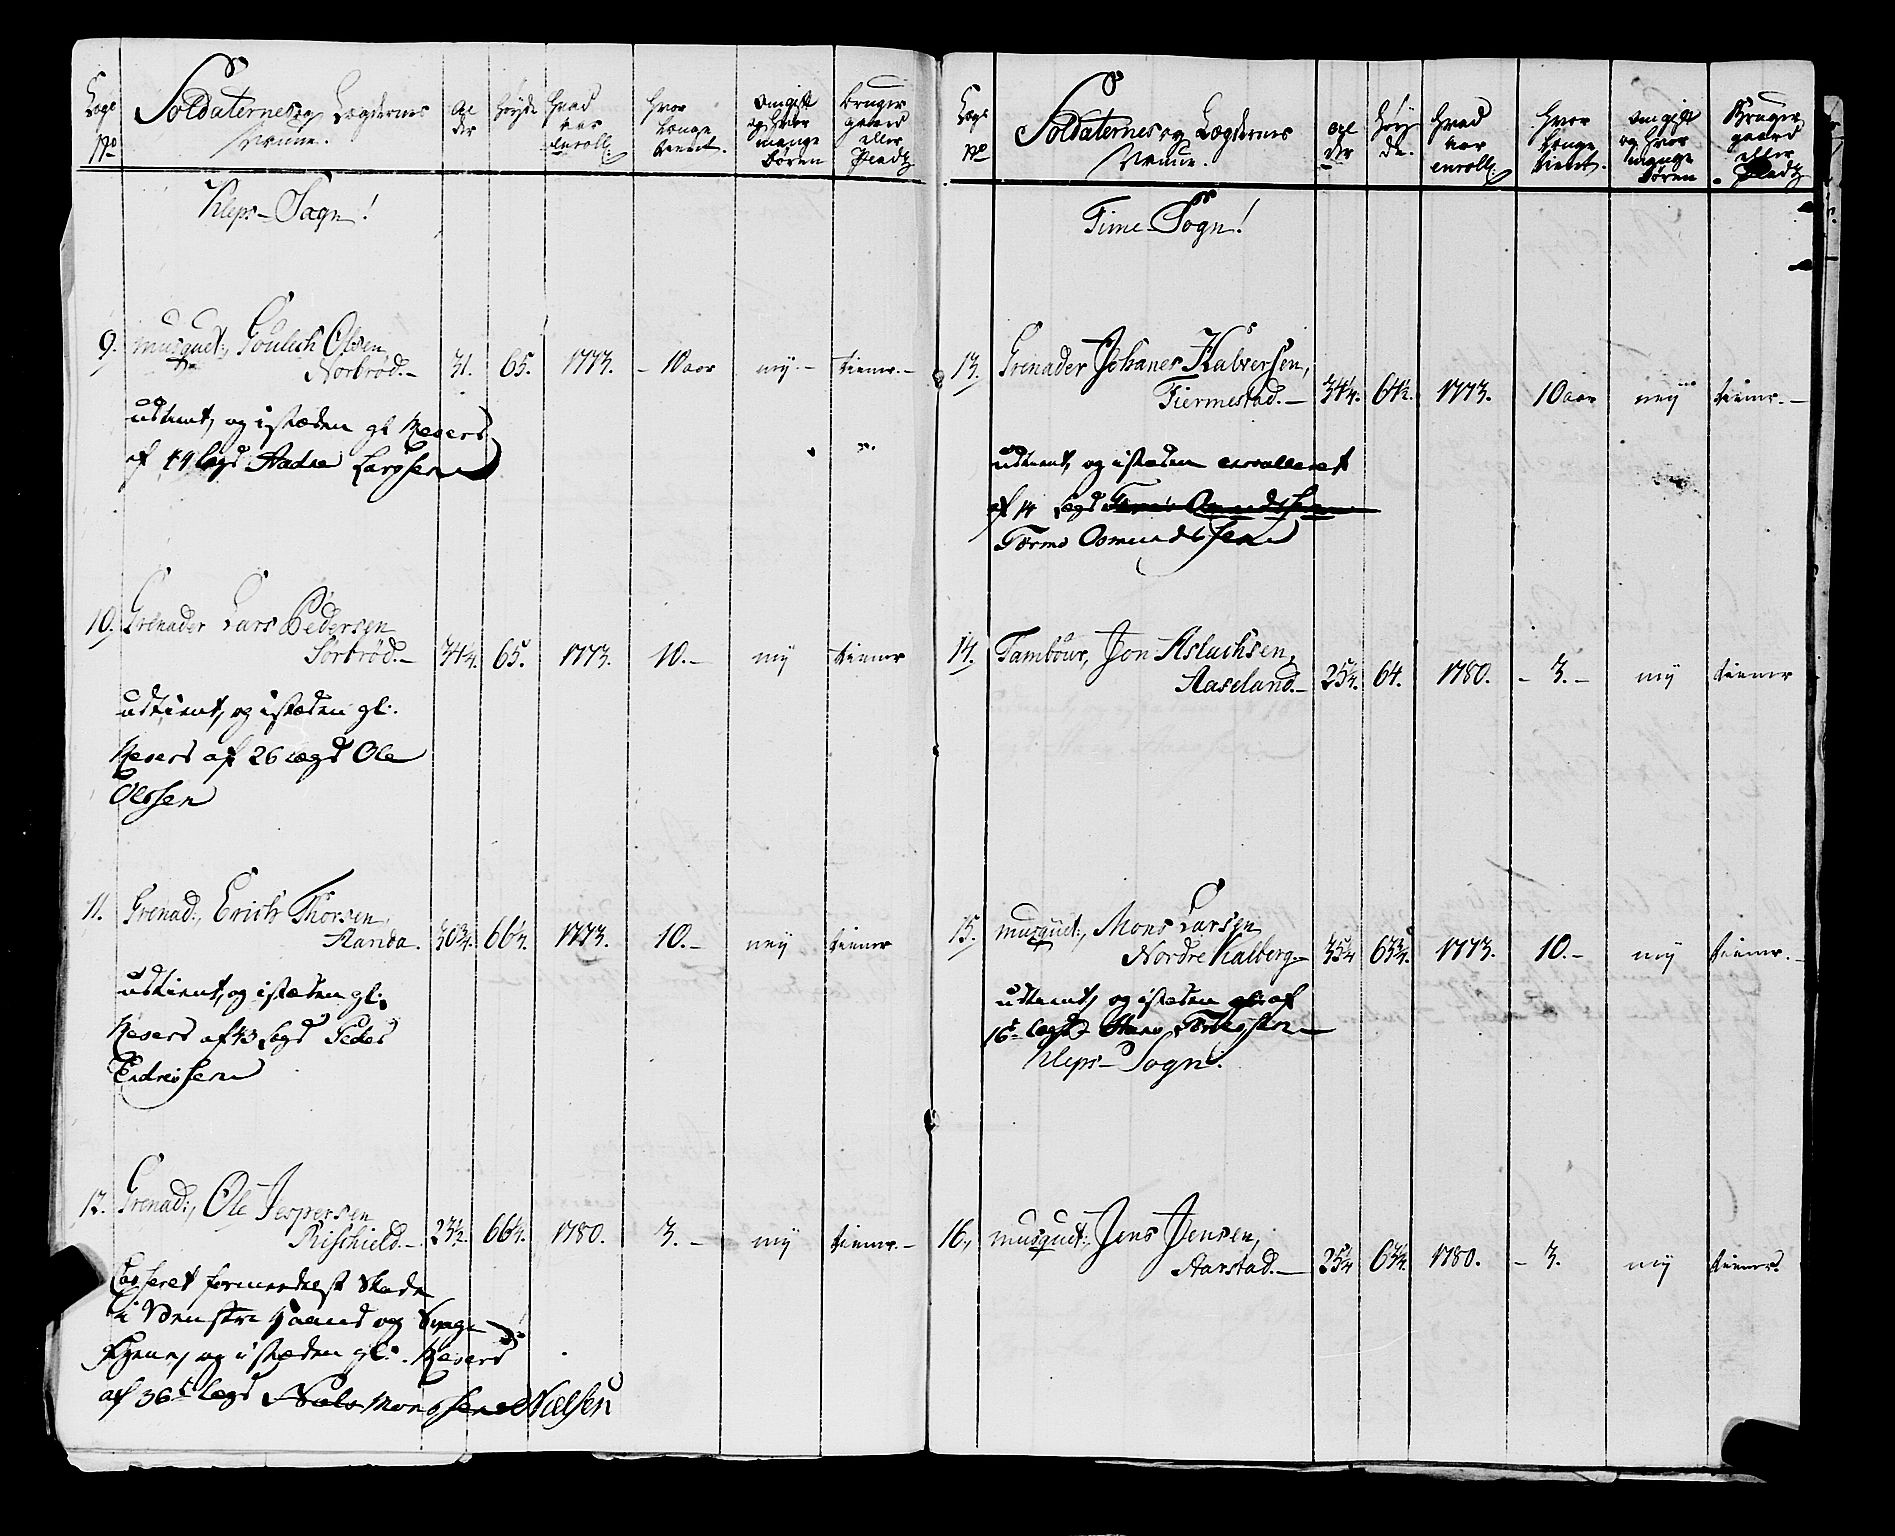 Lægs No | Soldaternes og Lægdernes Navne. | Al der | Høyde | Hvad aar enroll: | Hvor længe tient. | Om gift og hvor mange børen | bruger gaard eller Plads
Kleps Sogn!
9. Musquet:, Goulech Olsen
Norbrød.- 31. 65. 1773. - 10 aar nej - tiener.-
udtient, og i stæden gl Reserv
af 14 lægd Aadne Largsen
10. Grenader Lars Pedersen
Sørbrød.- 34¼. 65. 1773. 10.- nej tiener
udtient, og i stæden gl:
Reserv af 26 lægd Ole
Olssen
11. Grenad:, Erich Thorsen,
Aanda. 30¾. 66½. 1773. 10.- nej tiener
udtient, og i stæden gl:
Reserv af 43 lægd Peder
Endresen
12. Grenad:, Ole Jespersen
Risthield.- 23½. 66¼. 1780. 3.- nej tiener.-
Casseret formedelst Skade
i Venstre Haand og Svage
Øyene, og i stæden gl: Reserv
af 36te lægd Niels Monssen Nælsen
Lægs No | Soldaternes og Lægdernes Navne. | al der | Høy de. | Hvad aar enroll: | Hvor længe tient. | Om gift og hvor mange børen | Bruger gaard eller Plads
Time Sogn!
13. Grenader Johanes Halversen,
Tiermestad.- 34¼. 64½. 1773. 10 aar nej tiener.-
udtient, og i stæden enrolleret
af 14 lægd Tormo Osmundssen
Tormo Osmundssen
14. Tambour, Jon Aslachsen,
Aaseland.- 25¼. 64. 1780. - 3.- nej tiener
15. Musquet:, Mons Larsen
Nordre Kalberg.- 35¼ 63¾. 1773. 10.- nej tiener.-
udtient, og i stæden gl: af
16de lægd
Kleps Sogn.
16., Musquet:, Jens Jensen,
Aarstad.- 25¼ 63¼. 1780. - 3. nej tiener.